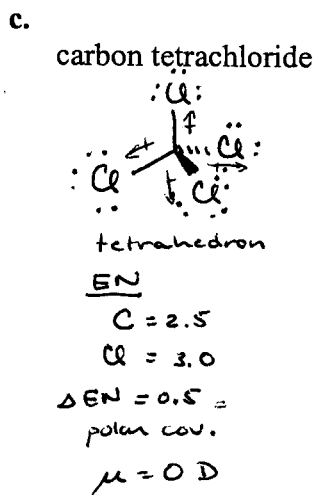 c.
carbon tetrachloride
:Cl:
Cl:
:Cl
Cl
tetrahedron
EN
C = 2.5
Cl = 3.0
ΔEN = 0.5 =
polar cov.
μ = 0 D